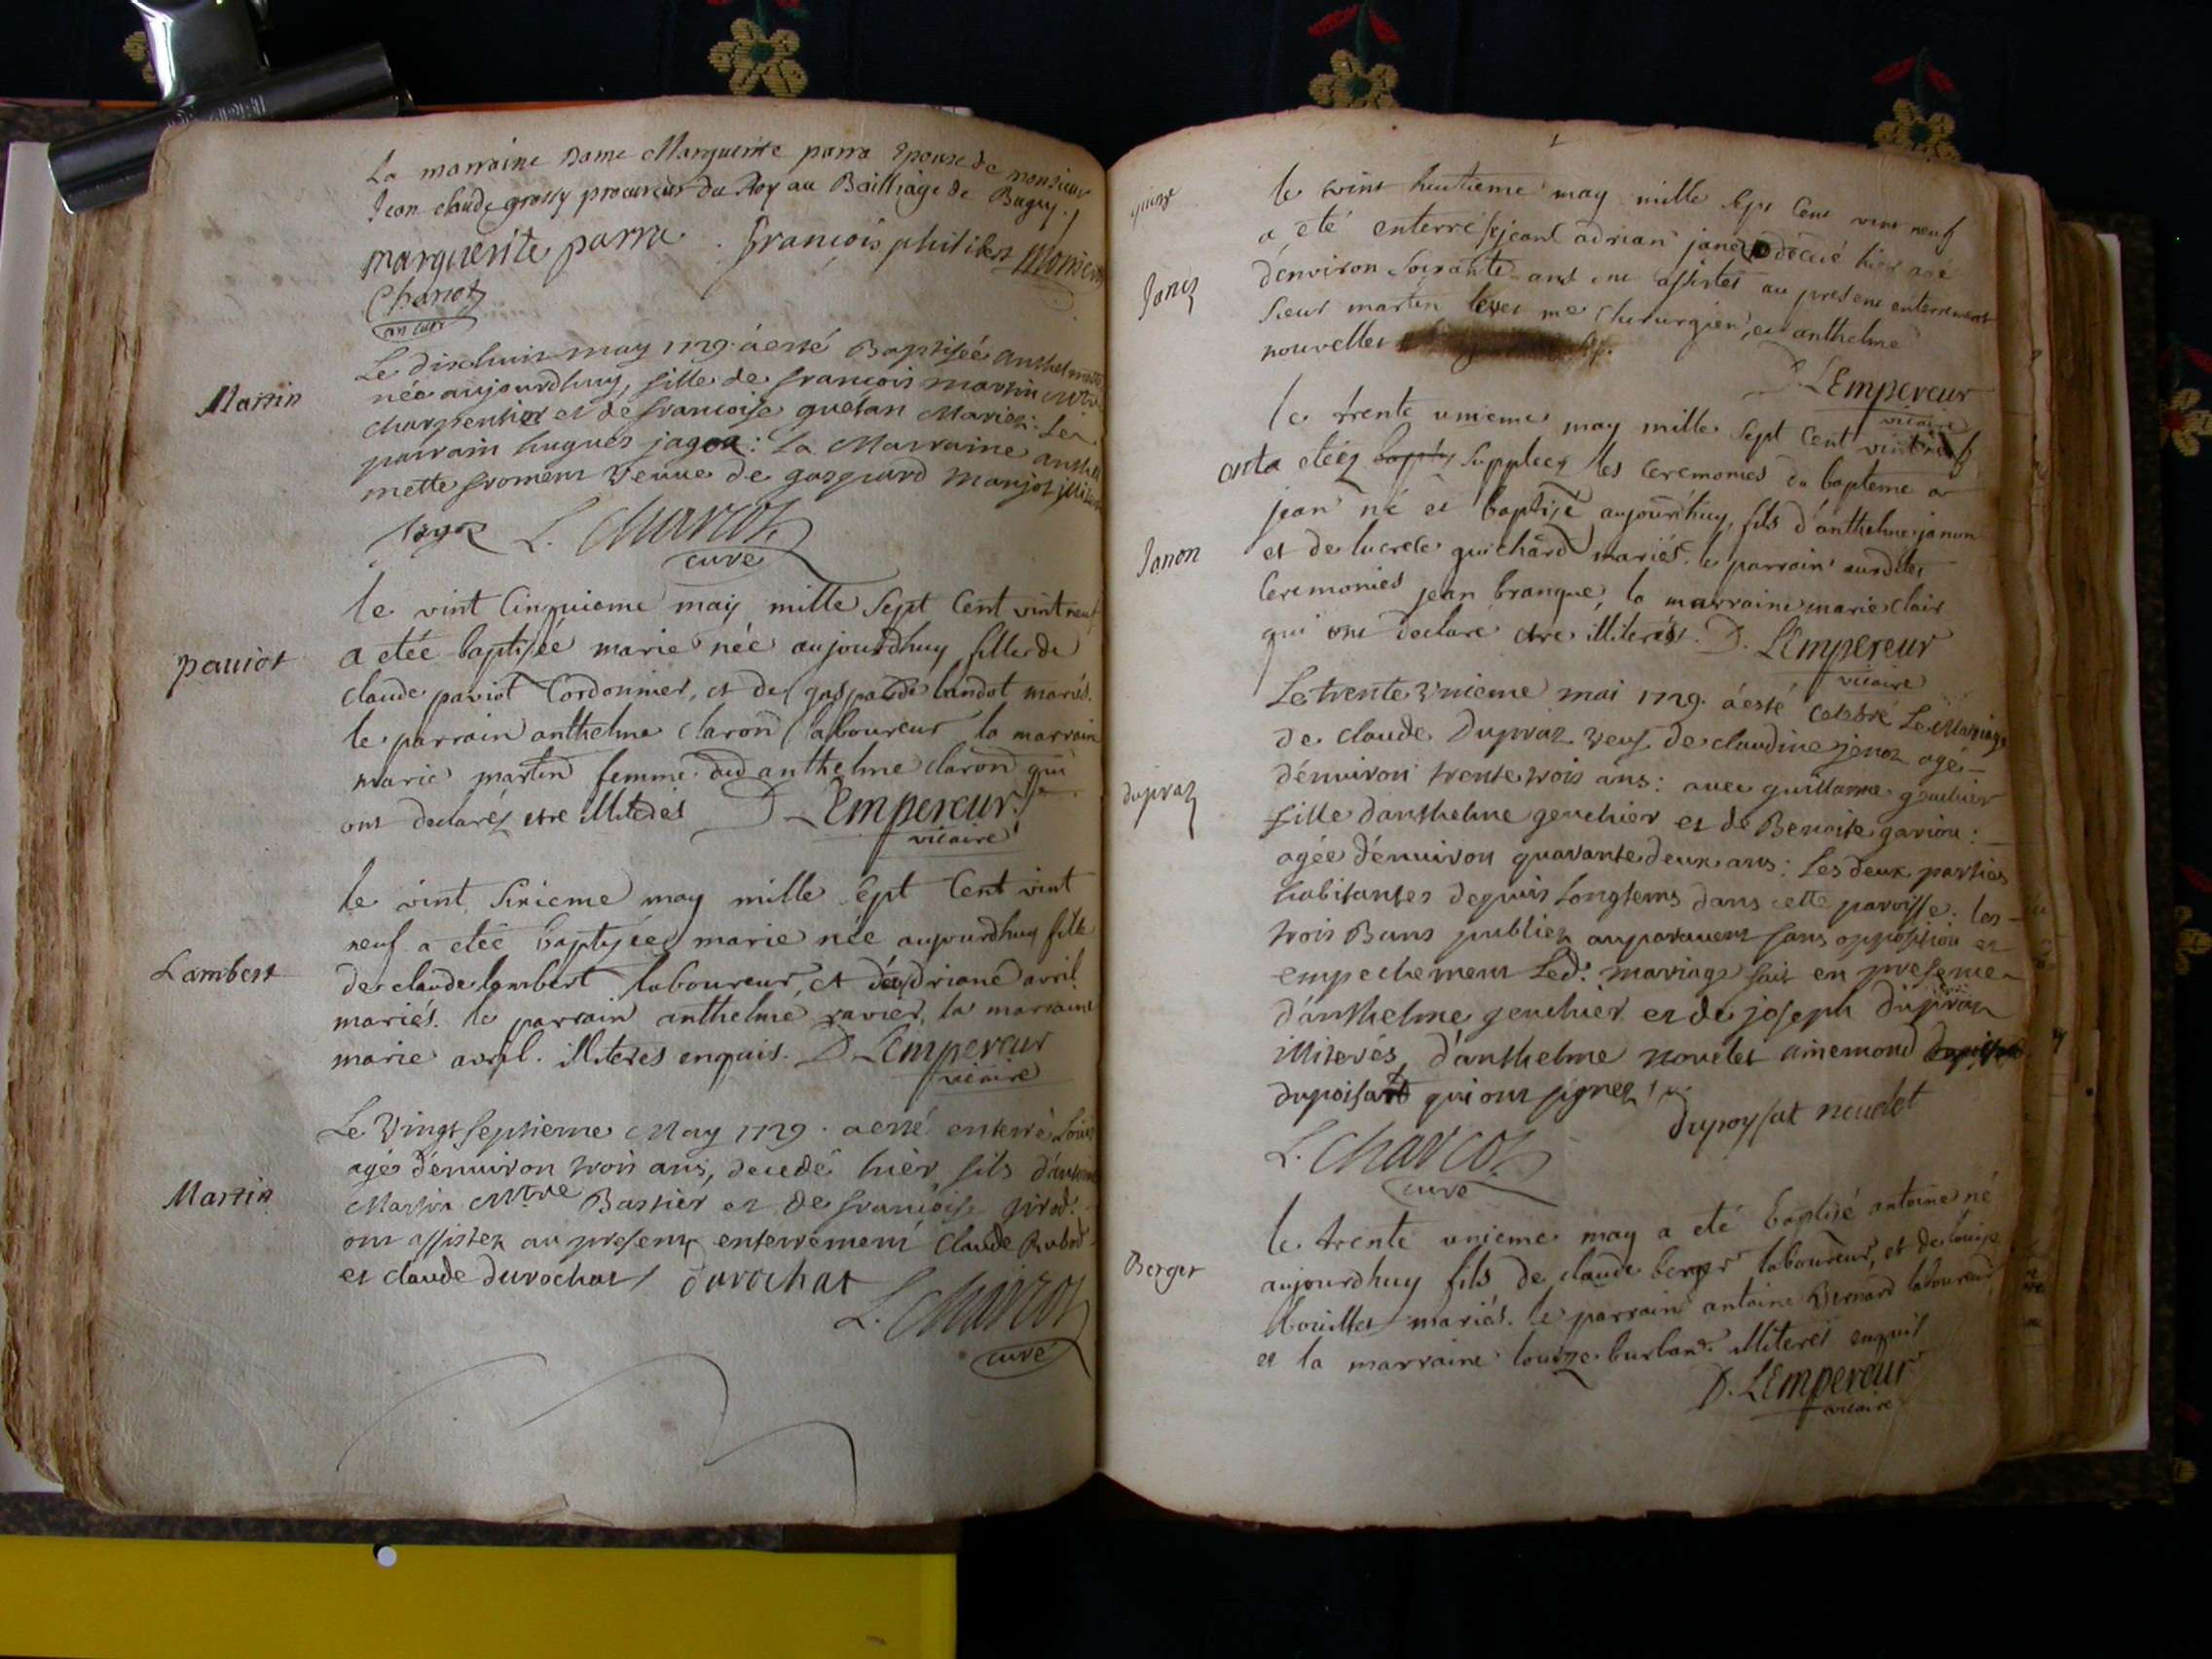 La marraine Dame Marguerite parra Epouse de monsieur
Jean claude grossy procureur du Roy au Bailliage de Bugey.
marguerite parra . françois philibert
Charcot
curé
Martin
Le dixhuit may 1729. a esté Baptisée Anthelmette
née aujourdhuy, fille de françois martin Mtre
charpentier et de francoise quelan Mariez: Le
parrain hugues jagoz: La Marraine anthel
mette froment Veuve de gaspard Marjot
Jagoz L. Charcot
curé
paviot
le vint Cinquieme maij mille Sept Cent vint neuf
a etée baptisée marie née aujourdhuy fille de
claude paviot Cordonnier, et de gasparde landot mariés.
le parrain anthelme claron laboureur la marraine
marie martin femme dud anthelme claron qui
ont declarés etre illiterés D. LEmpereur
vicaire
Lambert
le vint Sixieme may mille Sept Cent vint
neuf a etée baptisée marie née aujourdhuy fille
de claude lambert laboureur, et d'adriane avril
mariés. le parrain anthelme ravier, la marraine
marie avril. illiteres enquis. D. LEmpereur
vicaire
Martin
Le Vingt septieme May 1729. a esté enterré Louis
agé d'enuiron trois ans, decedé hier, fils d'antoine
Martin Mtre Bastier et de françoise girod.
ont assistez au present enterrement Claude Robod
et claude durochat / durochat
L. Charcot
curé
Janez
le vint huitieme may mille Sept Cent vint neuf
a eté enterré adrian janez décédé hier agé
d'environ Soixante ans ont assistés au present enterrement
Sieur martin me chirurgien, et anthelme
nouvellet
D. LEmpereur
vicaire
Janon
le trente unieme may mille Sept Cent vint neuf
ont etéez Suppleez les Ceremonies du bapteme a
jean né et baptisé aujourd'huy, fils d'anthelme janon
et de lucrece guichard mariés. le parrain auxdites
Ceremonies jean branque, la marraine marie clair
qui ont declaré etre illiterés. D. LEmpereur
vicaire
dupraz
Le trente Vnieme mai 1729. a esté Celebré Le Mariage
De claude Dupraz veuf de claudine jenoz agé
d'enuiron trente trois ans: avec guillarme genthier
fille danthelme genthier et de Benoite gariou:
agée d'enuiron quarante deux ans: Les deux parties
habitantes depuis longtems dans cette paroisse: les
trois Bans publiez auparavent sans opposition et
empechement Led. mariage fait en presence
d'anthelme genthier et de joseph dupraz
illiterés, d'anthelme novelet aimemond
dupoisat qui ont signez
dupoysat neudet
L. Charcot
curé
Berger
le trente unieme may a eté baptisé antoine né
aujourdhuy fils de claude berger laboureur, et de louise
bouillet mariés. le parrain antoine Bernard laboureur
et la marraine louize burland. illiteres enquis
D. LEmpereur
vicaire